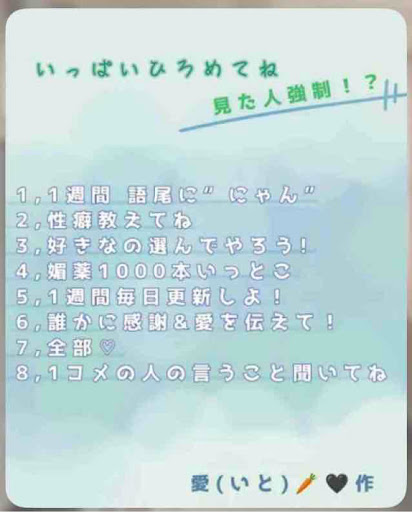 いっぱいひろめてね
見た人強制！？
1,1週間 語尾に”にゃん”
2,性癖教えてね
3,好きなの選んでやろう!
4,媚薬1000本いっとこ
5,1週間毎日更新しよ！
6,誰かに感謝&愛を伝えて！
7,全部♡
8,1コメの人の言うこと聞いてね
愛(いと)🥕🖤作